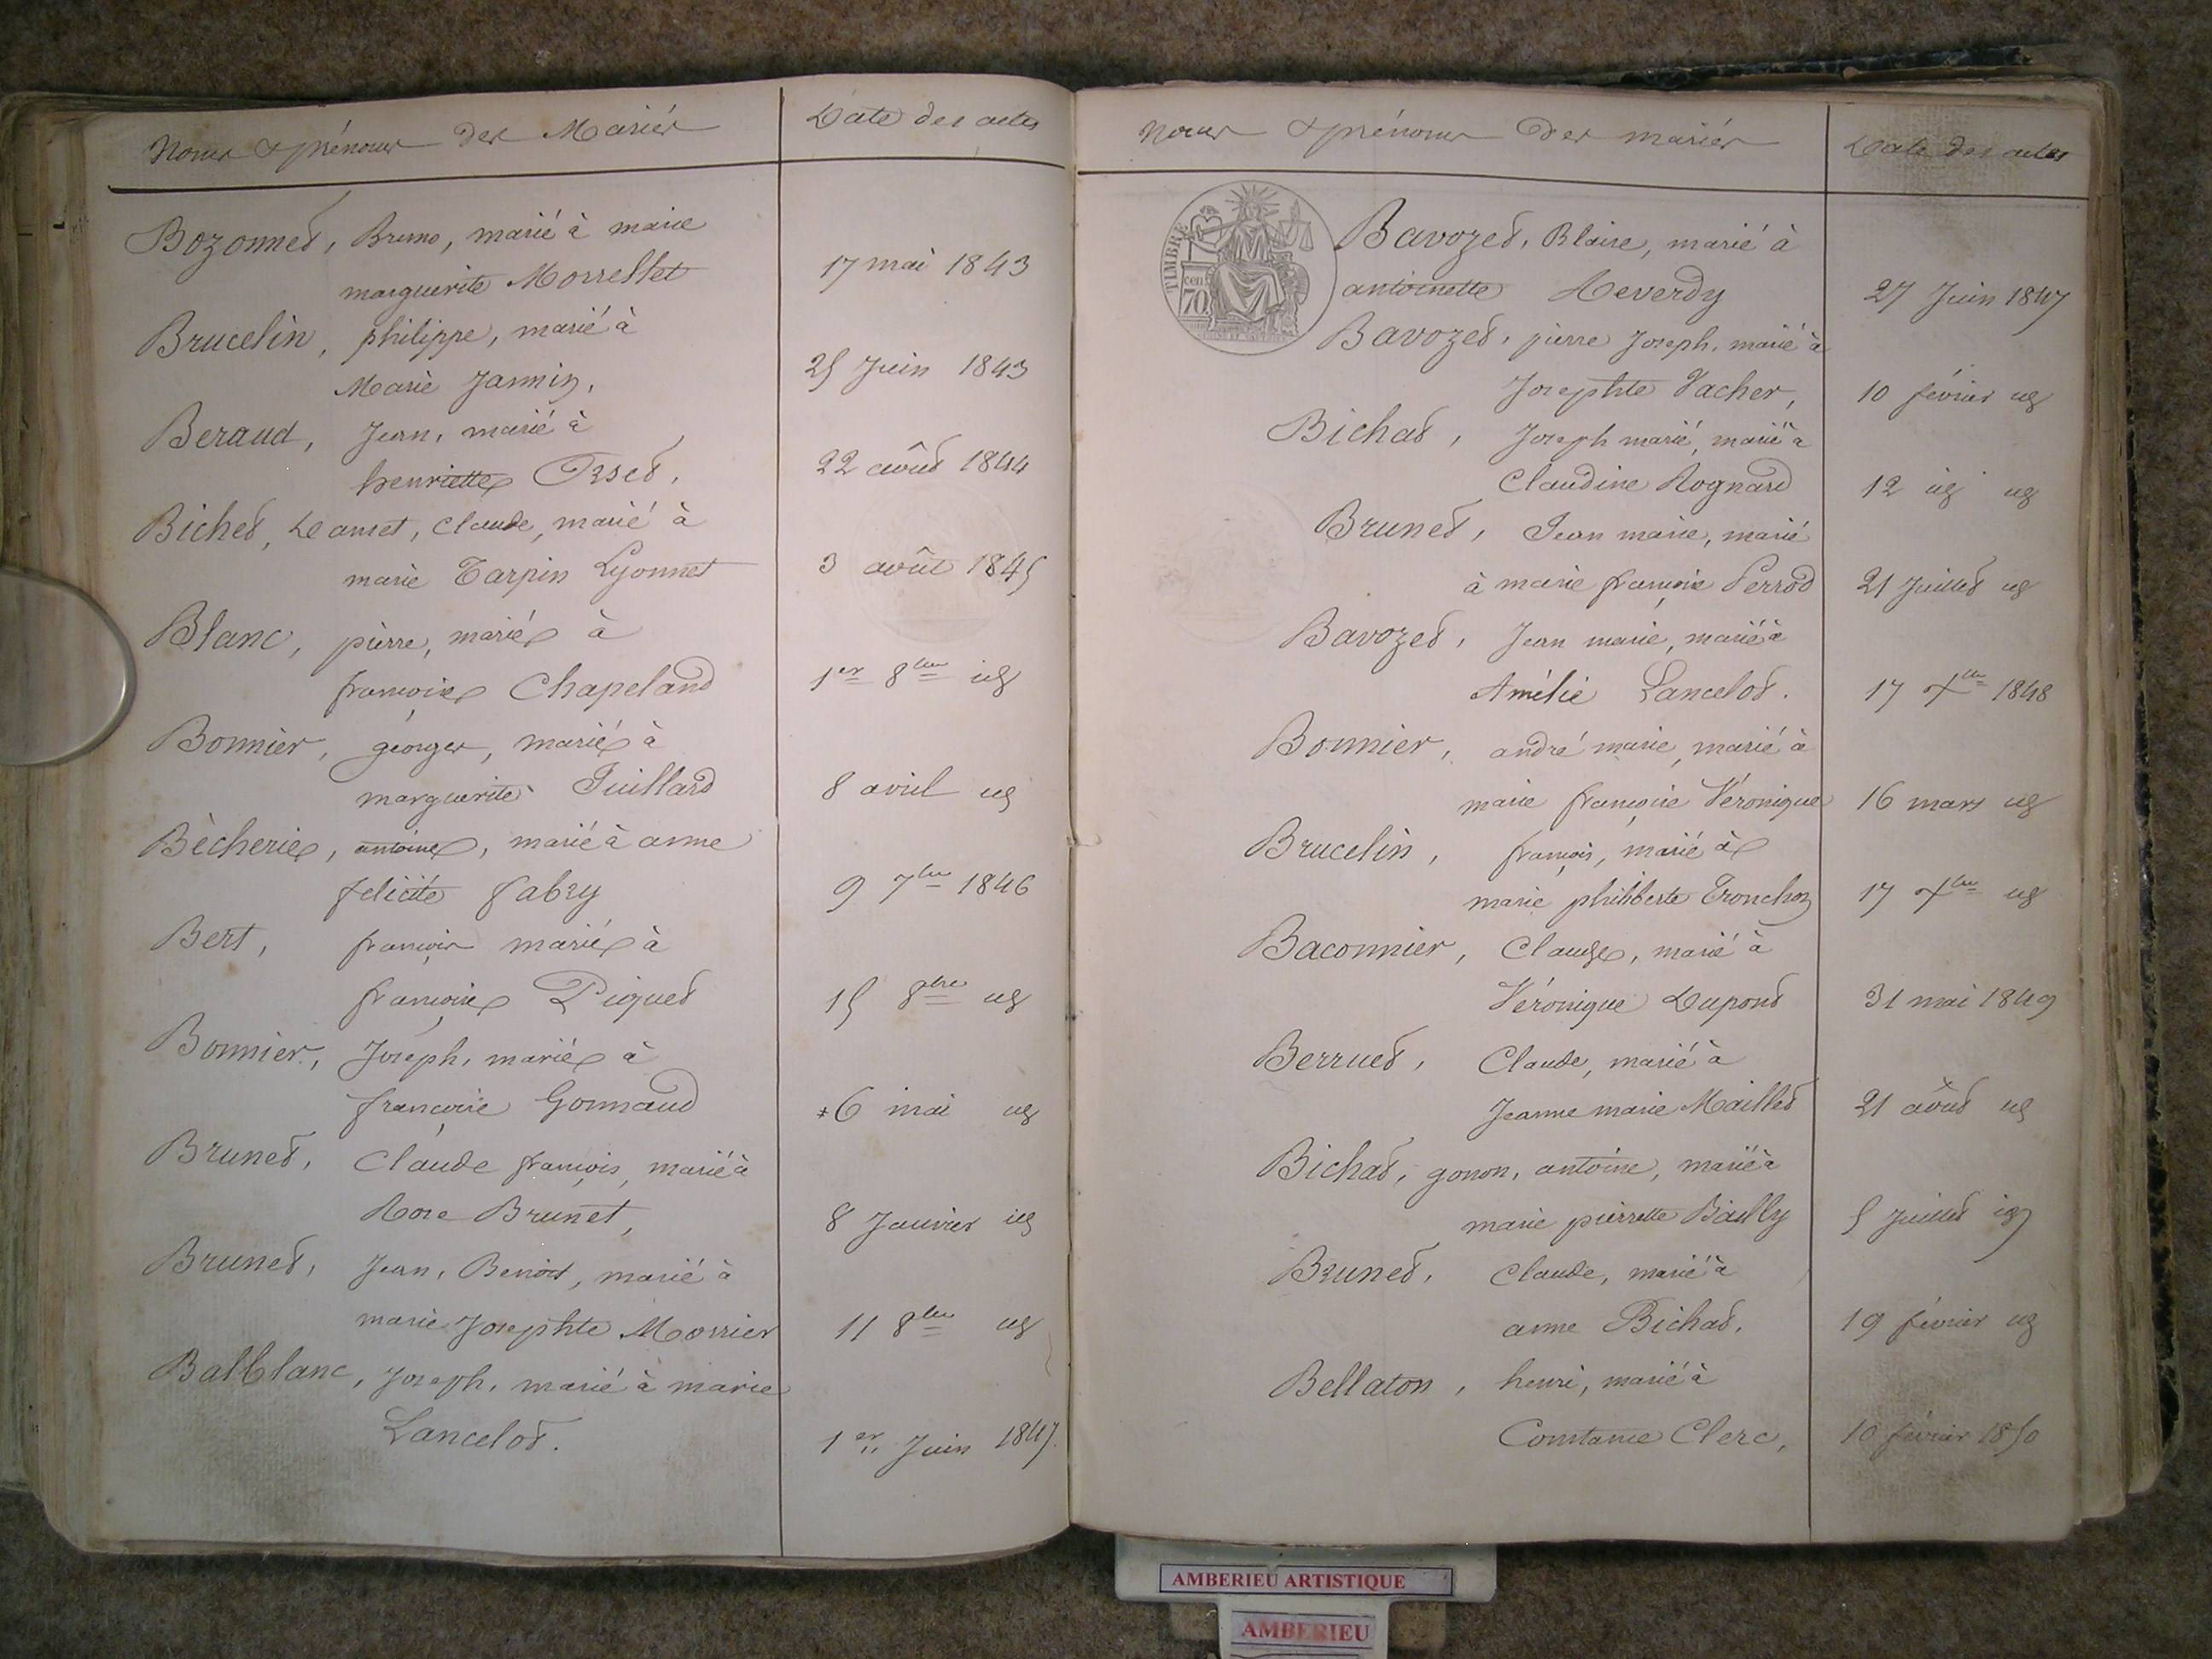 Noms & prénoms des Mariés
Date des actes
Bozonnet, Bruno, marié à marie
marguerite Morrellet
17 mai 1843
Brucelin, philippe, marié à
Marie Jannin,
25 Juin 1843
Beraud, Jean, marié à
henriette Orset,
22 août 1844
Bichet, Le amet, Claude, marié à
marie Tarpin Lyonnet
3 août 1845
Blanc, pierre, marié à
françoise Chapeland
1er 8bre id
Bonnier, georges, marié à
marguerite Juillard
8 avril id
Bècherie, antoine, marié à anne
felicité fabry
9 7bre 1846
Bert, françois marié à
françoise Piquet
15 8bre id
Bonnier, Joseph, marié à
françoise Gonnaud
6 mai id
Brunet, Claude françois, marié à
Rose Brunet,
8 Janvier id
Brunet, Jean, Benoit, marié à
marie Josephte Morrier
11 8bre id
Balblanc, Joseph, marié à marie
Lancelot.
1er Juin 1847.
Noms & prénoms des mariés
Date des actes
TIMBRE
cen
70
Bavozet, Blaise, marié à
antoinette Reverdy
27 Juin 1847
Bavozet, pierre Joseph, marié à
Josephte Vacher,
10 février id
Bichat, Joseph marié, marié à
Claudine Rognard
12 id id
Brunet, Jean marie, marié
à marie françoise Perrod
21 Juillet id
Bavozet, Jean marie, marié à
Amélie Lancelot.
17 Xbre 1848
Bonnier, andré marie, marié à
marie françoise Véronique
16 mars id
Brucelin, françois, marié à
marie philiberte Tronchoz
17 Xbre id
Baconnier, Claude, marié à
Véronique Dupont
31 mai 1849
Berruet, Claude, marié à
Jeanne marie Maillet
21 août id
Bichat, gonon, antoine, marié à
marie pierrette Bailly
5 Juillet id
Brunet, Claude, marié à
anne Bichat,
19 février id
Bellaton, henri, marié à
Constance Clerc,
10 février 1850
AMBERIEU ARTISTIQUE
AMBERIEU